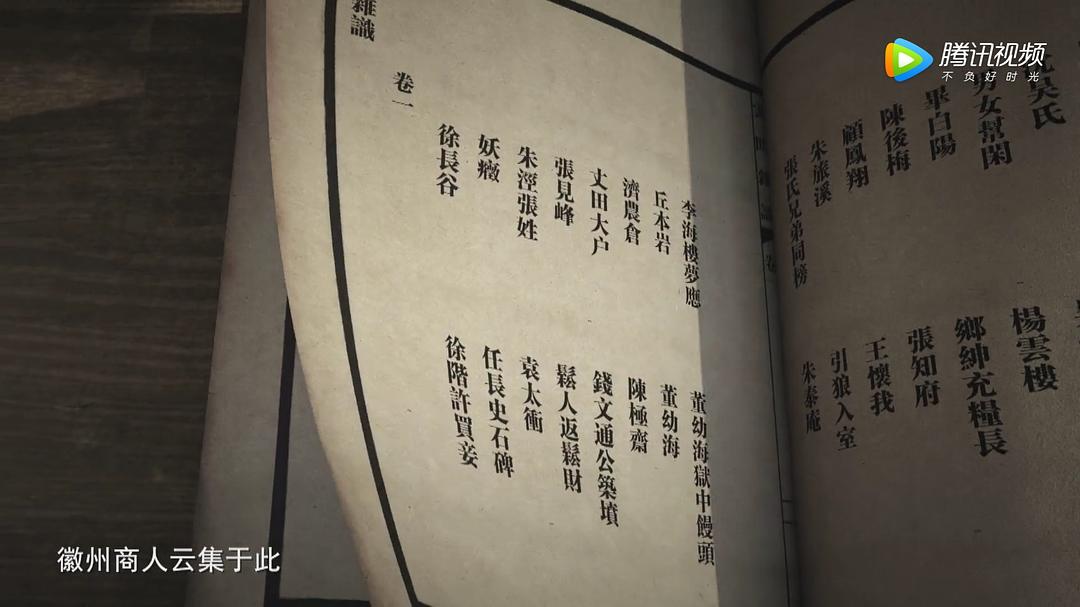 雜識
卷一
徐長谷
徐階許買妾
妖癥
任長史石碑
朱涇張姓
袁太衝
張見峰
鬆人返鬆財
丈田大户
錢文通公築墳
濟農倉
陳極齋
丘本岩
董幼海
李海樓夢應
董幼海獄中饅頭
張氏兄弟同榜
朱泰庵
朱旅溪
引狼入室
顧鳳翔
王懷我
陳後梅
張知府
畢白陽
鄉紳充糧長
男女幫閑
楊雲樓
吳氏
腾讯视频
不负好时光
徽州商人云集于此